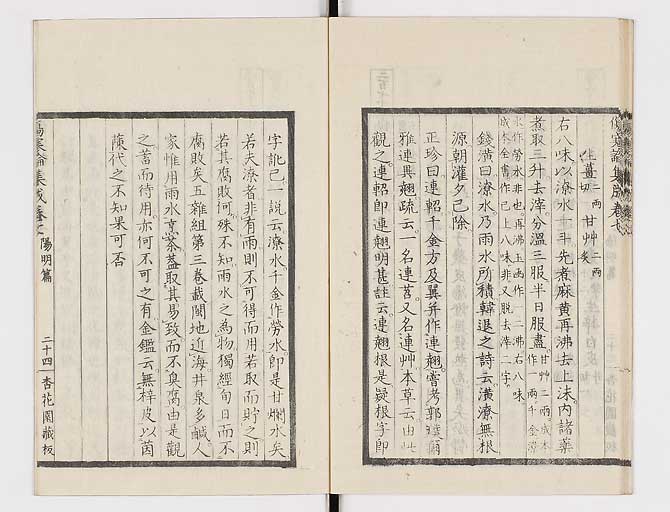 傷寒論集成卷七
生薑二兩切 甘艸二兩炙
右八味以潦水一斗先煮麻黃再沸去上沫內諸藥
煮取三升去滓分溫三服半日服盡甘艸二兩成本作一兩千金潦
水作勞水非也再沸玉函作一二沸右八味
成本全書作已上八味非又脫去滓二字
錢潢曰潦水乃雨水所積韓退之詩云潢潦無根
源朝灌夕已除
正珍曰連軺千金方及翼并作連翹嘗考郭璞爾
雅連異翹疏云一名連苕又名連艸本草云由此
觀之連軺卽連翹明甚註云連翹根是疑根字卽
字訛已一說云潦水千金作勞水卽是甘爛水矣
若夫潦者非有雨則不可得而用若取而貯之則
若其腐敗何殊不知雨水之爲物獨經旬日而不
腐敗矣五雜組第三卷載閩地近海井泉多鹹人
家惟用雨水烹茶葢取其易致而不臭腐由是觀
之蓄而待用亦何不可之有金鑑云無梓皮以茵
蔯代之不知果可否
傷寒論集成卷七 陽明篇 二十四 杏花園藏板